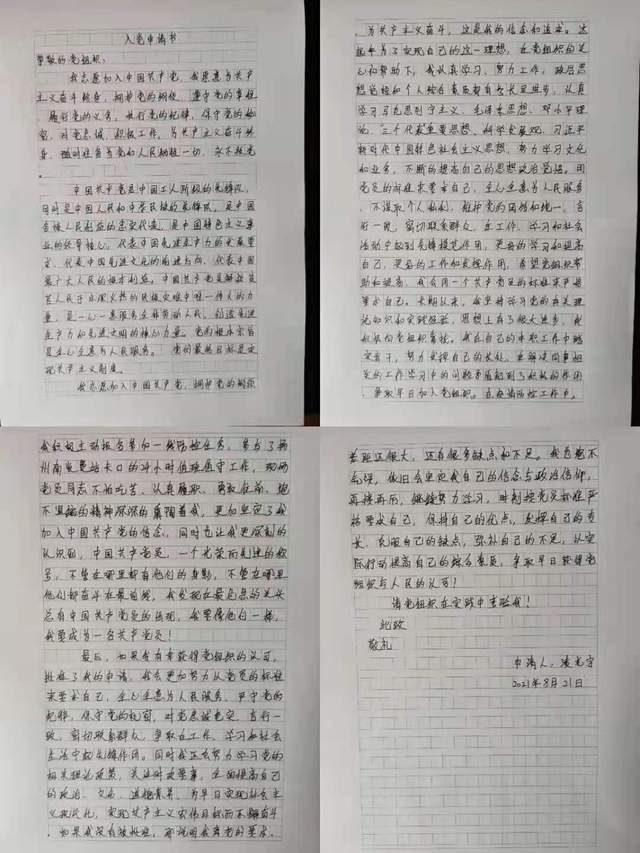 入党申请书
尊敬的党组织：
我志愿加入中国共产党，我愿意为共产
主义奋斗终身，拥护党的纲领，遵守党的章程
，履行党的义务，执行党的纪律，保守党的秘
密，对党忠诚，积极工作，为共产主义奋斗终
身，随时准备为党和人民牺牲一切，永不叛党
。
中国共产党是中国工人阶级的先锋队，
同时是中国人民和中华民族的先锋队，是中国
各族人民利益的忠实代表，是中国特色主义事
业的领导核心，代表中国先进生产力的发展要
求，代表中国先进文化的前进方向，代表中国
最广大人民的根本利益。中国共产党是解救贫
苦人民于水深火热的民族实现中国一伟大的力
量，是一心一意服务全体劳动人民，创造先进
生产力和先进文明的核心力量。党的根本宗旨
是全心全意为人民服务。党的最终目标是实
现共产主义制度。
我志愿加入中国共产党，拥护党的纲领
，为共产主义奋斗，这是我的信念和追求。这
些年为了实现自己的这一理想，在党组织的关
心和帮助下，我认真学习，努力工作，政治思
想觉悟和个人综合素质都有长足进步，认真
学习马克思列宁主义、毛泽东思想、邓小平理
论、“三个代表”重要思想、科学发展观、习近平
新时代中国特色社会主义思想，努力学习文化
和业务，不断的提高自己的思想政治觉悟。用
党员的标准来要求自己，全心全意为人民服务
，不谋取个人私利，维护党的团结和统一，言
行一致，密切联系群众，在工作、学习和社会
活动中起到先锋模范作用，更好的学习和提高
自己，更好的工作和发挥作用，希望党组织帮
助和提高，我会用一个共产党员的标准来严格
要求自己。长期以来，我坚持学习党的有关理
论知识和实践经验，思想上有了很大进步，我
积极向党组织靠拢。我在自己的本职工作中踏
实肯干，努力发挥自己的长处，在解决同事相
关的工作学习中的问题方面起到了积极的作用
，争取早日加入党组织。在疫情防控工作中，
我积极主动报名参加一线防控任务，参与了扬
州南收费站卡口的24小时值班值守工作，现场
党员同志不怕吃苦、认真履职、勇敢在前、绝
不退缩的精神深深的熏陶着我，更加坚定了我
加入中国共产党的信念，同时也让我更深刻的
认识到，中国共产党员，一个光荣而先进的称
号，不管在哪里都有他们的身影，不管在哪里
他们都奋斗在最前线，我发现在最危急的关头
总有中国共产党员的出现，我要像他们一样，
我要成为一名共产党员！
最后，如果我有幸获得党组织的认可，
批准了我的申请，我会更加努力从党员的标准
来要求自己，全心全意为人民服务，严守党的
纪律，保守党的机密，对党忠诚老实，言行一
致，密切联系群众，争取在工作、学习和社会
生活中起先锋作用。同时我还会努力学习党的
相关理论政策，关注时政要事，全面提高自己
的政治、文化、道德素养，为早日实现社会主
义现代化，实现共产主义宏伟目标而不懈奋斗
。如果我没有被批准，那说明我离党的要求，
差距还很大，还有很多缺点和不足。我毫绝不
气馁，依旧会坚定我自己的信念与政治信仰，
再接再厉，继续努力学习，时刻按党员标准严
格要求自己，保持自己的优点，发挥自己的专
长，克服自己的缺点，弥补自己的不足，从实
际行动提高自己的综合素质，争取早日获得党
组织与人民的认可！
请党组织在实践中考验我！
此致
敬礼
申请人：凌光宇
2021年8月21日